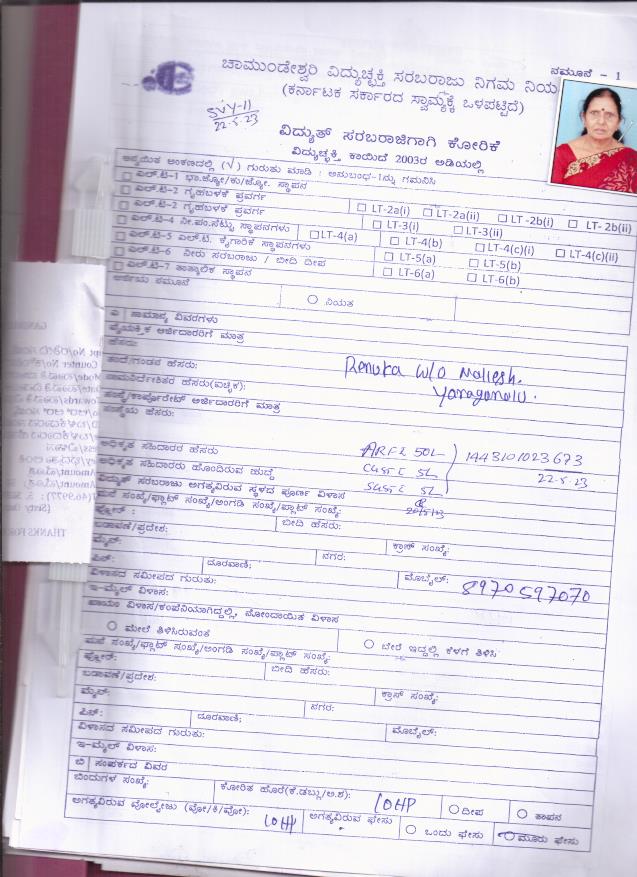 ನಮೂನೆ - 1
ಚಾಮುಂಡೇಶ್ವರಿ ವಿದ್ಯುಚ್ಛಕ್ತಿ ಸರಬರಾಜು ನಿಗಮ ನಿಯ
(ಕರ್ನಾಟಕ ಸರ್ಕಾರದ ಸ್ವಾಮ್ಯಕ್ಕೆ ಒಳಪಟ್ಟಿದೆ)
22-5-23
ವಿದ್ಯುತ್ ಸರಬರಾಜಿಗಾಗಿ ಕೋರಿಕೆ
ವಿದ್ಯುಚ್ಛಕ್ತಿ ಕಾಯಿದೆ 2003ರ ಅಡಿಯಲ್ಲಿ
ಅನ್ವಯಿತ ಅಂಕಣದಲ್ಲಿ (√) ಗುರುತು ಮಾಡಿ : ಅನುಬಂಧ-1ನ್ನು ಗಮನಿಸಿ
ಎಲ್.ಟಿ-1 ಭಾ.ಜ್ಯೋ/ಕು/ಜ್ಯೋ. ಸ್ಥಾಪನ
ಎಲ್.ಟಿ-2 ಗೃಹಬಳಕೆ ಪ್ರವರ್ಗ LT-2a(i) LT-2a(ii) LT -2b(i) LT- 2b(ii)
ಎಲ್.ಟಿ-2 ಗೃಹಬಳಕೆ ಪ್ರವರ್ಗ LT-3(i) LT-3(ii)
ಎಲ್.ಟಿ-4 ನೀ.ಪಂ.ಸೆಟ್ಟು ಸ್ಥಾಪನಗಳು LT-4(a) LT-4(b) LT-4(c)(i) LT-4(c)(ii)
ಎಲ್.ಟಿ-5 ಎಲ್.ಟಿ. ಕೈಗಾರಿಕೆ ಸ್ಥಾಪನೆಗಳು LT-5(a) LT-5(b)
ಎಲ್.ಟಿ-6 ನೀರು ಸರಬರಾಜು / ಬೀದಿ ದೀಪ LT-6(a) LT-6(b)
ಎಲ್.ಟಿ-7 ತಾತ್ಕಾಲಿಕ ಸ್ಥಾಪನ
ಅರ್ಜಿಯ ನಮೂನೆ ನಿಯತ
ಎ ಸಾಮಾನ್ಯ ವಿವರಗಳು
ವೈಯಕ್ತಿಕ ಅರ್ಜಿದಾರರಿಗೆ ಮಾತ್ರ
ಹೆಸರು: Renuka W/o Mallesh.
ತಂದೆ/ಗಂಡನ ಹೆಸರು:
ನಾಮನಿರ್ದೇಶಿತರ ಹೆಸರು(ಐಚ್ಛಿಕ):
ಸಂಸ್ಥೆ/ಕಾರ್ಪೊರೇಟ್ ಅರ್ಜಿದಾರರಿಗೆ ಮಾತ್ರ
ಸಂಸ್ಥೆಯ ಹೆಸರು:
ಅಧಿಕೃತ ಸಹಿದಾರರ ಹೆಸರು 1443101023673
ಅಧಿಕೃತ ಸಹಿದಾರರು ಹೊಂದಿರುವ ಹುದ್ದೆ 22-5-23
ವಿದ್ಯುತ್ ಸರಬರಾಜು ಅಗತ್ಯವಿರುವ ಸ್ಥಳದ ಪೂರ್ಣ ವಿಳಾಸ
ಮನೆ ಸಂಖ್ಯೆ/ಫ್ಲಾಟ್ ಸಂಖ್ಯೆ/ಅಂಗಡಿ ಸಂಖ್ಯೆ/ಪ್ಲಾಟ್ ಸಂಖ್ಯೆ:
ಫ್ಲೋರ್ : ಬೀದಿ ಹೆಸರು:
ಬಡಾವಣೆ/ಪ್ರದೇಶ:
ಮೈನ್: ಕ್ರಾಸ್ ಸಂಖ್ಯೆ:
ಪಿನ್: ದೂರವಾಣಿ: ನಗರ:
ವಿಳಾಸದ ಸಮೀಪದ ಗುರುತು: ಮೊಬೈಲ್: 8970597070
ಇ-ಮೈಲ್ ವಿಳಾಸ:
ಖಾಯಂ ವಿಳಾಸ/ಕಂಪೆನಿಯಾಗಿದ್ದಲ್ಲಿ, ನೋಂದಾಯಿತ ವಿಳಾಸ
ಮೇಲೆ ತಿಳಿಸಿರುವಂತೆ ಬೇರೆ ಇದ್ದಲ್ಲಿ ಕೆಳಗೆ ತಿಳಿಸಿ
ಮನೆ ಸಂಖ್ಯೆ/ಫ್ಲಾಟ್ ಸಂಖ್ಯೆ/ಅಂಗಡಿ ಸಂಖ್ಯೆ/ಪ್ಲಾಟ್ ಸಂಖ್ಯೆ:
ಫ್ಲೋರ್: ಬೀದಿ ಹೆಸರು:
ಬಡಾವಣೆ/ಪ್ರದೇಶ:
ಮೈನ್: ಕ್ರಾಸ್ ಸಂಖ್ಯೆ:
ಪಿನ್: ದೂರವಾಣಿ: ನಗರ:
ವಿಳಾಸದ ಸಮೀಪದ ಗುರುತು: ಮೊಬೈಲ್:
ಇ-ಮೈಲ್ ವಿಳಾಸ:
ಬಿ ಸಂಪರ್ಕದ ವಿವರ
ಬಿಂದುಗಳ ಸಂಖ್ಯೆ: ಕೋರಿತ ಹೊರೆ(ಕೆ.ಡಬ್ಲು/ಅ.ಶ): 10HP ದೀಪ ತಾಪನ
ಅಗತ್ಯವಿರುವ ವೋಲ್ಟೇಜು (ವೋ/ಕಿ/ವೋ): 10HP ಅಗತ್ಯವಿರುವ ಫೇಸು ಒಂದು ಫೇಸು ಮೂರು ಫೇಸು